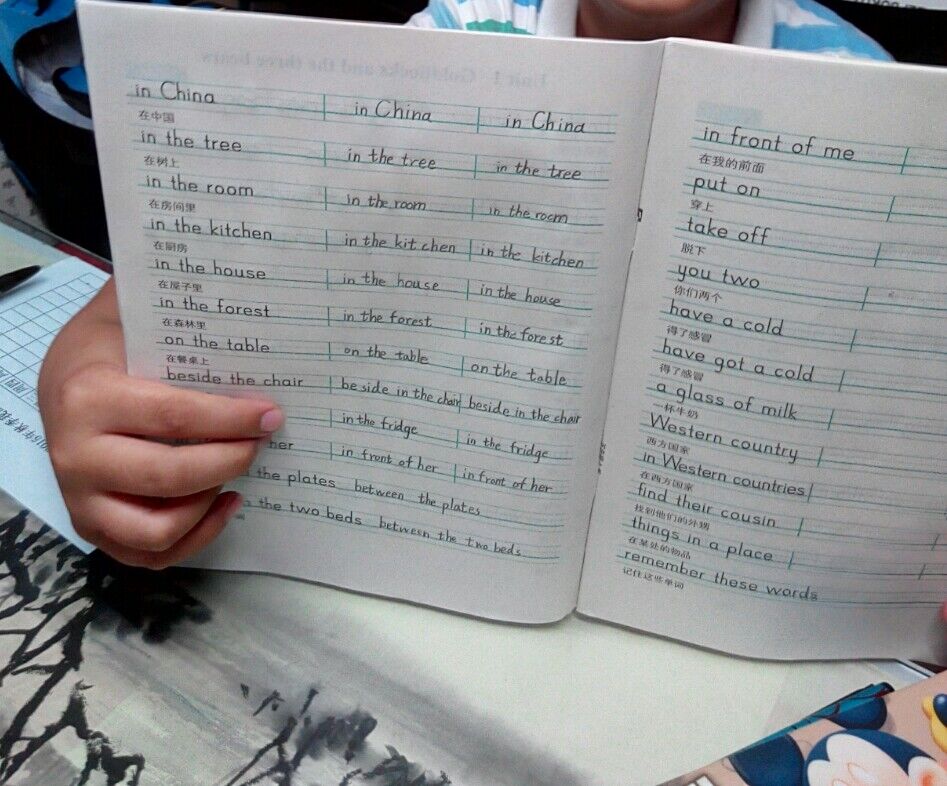 in China in China in China
在中国
in the tree in the tree in the tree
在树上
in the room in the room in the room
在房间里
in the kitchen in the kit chen in the kitchen
在厨房
in the house in the house in the house
在屋子里
in the forest in the forest in the forest
在森林里
on the table on the table on the table
在餐桌上
beside the chair beside in the chair beside in the chair
in the fridge in the fridge
her in front of her in front of her
the plates between the plates
the two beds between the two beds
in front of me
在我的前面
put on
穿上
take off
脱下
you two
你们两个
have a cold
得了感冒
have got a cold
得了感冒
a glass of milk
一杯牛奶
Western country
西方国家
in Western countries
在西方国家
find their cousin
找到他们的外甥
things in a place
在某处的物品
remember these words
记住这些单词